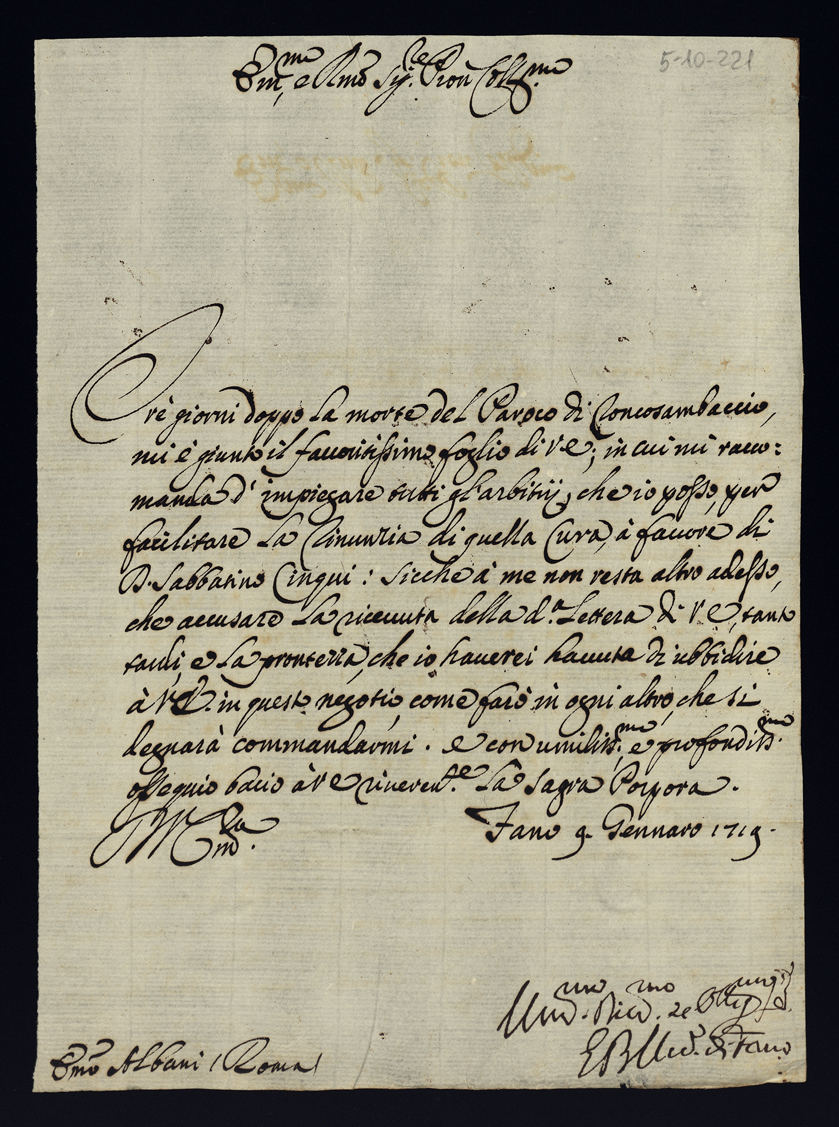 Em.mo e Rmo Sig.re Pron Coll.mo
5-10-221
Trè giorni doppo la morte del Paroco di Roncosambaccio,
mi è giunto il favoritissimo foglio di V.E; in cui mi racco:
manda d'impiegare tutti gl'arbitrij, che io posso, per
facilitare la Rinunzia di quella Cura, à favore di
D. Sabbatino Cinqui: Sicche à me non resta altro adesso,
che accusare la ricevuta della d.a Lettera di V E, tant
la prontezza, che io haverei havuta di ubbidire
à V.E. in questo negotio, come farò in ogni altro, che si
degnarà commandarmi. e con umiliss.mo e profondiss.mo
ossequio bacio à V E riverent.e la Sagra Porpora.
Fano 9 Gennaro 1719.
Um.mo
di Fano
Emo Albani (Roma)